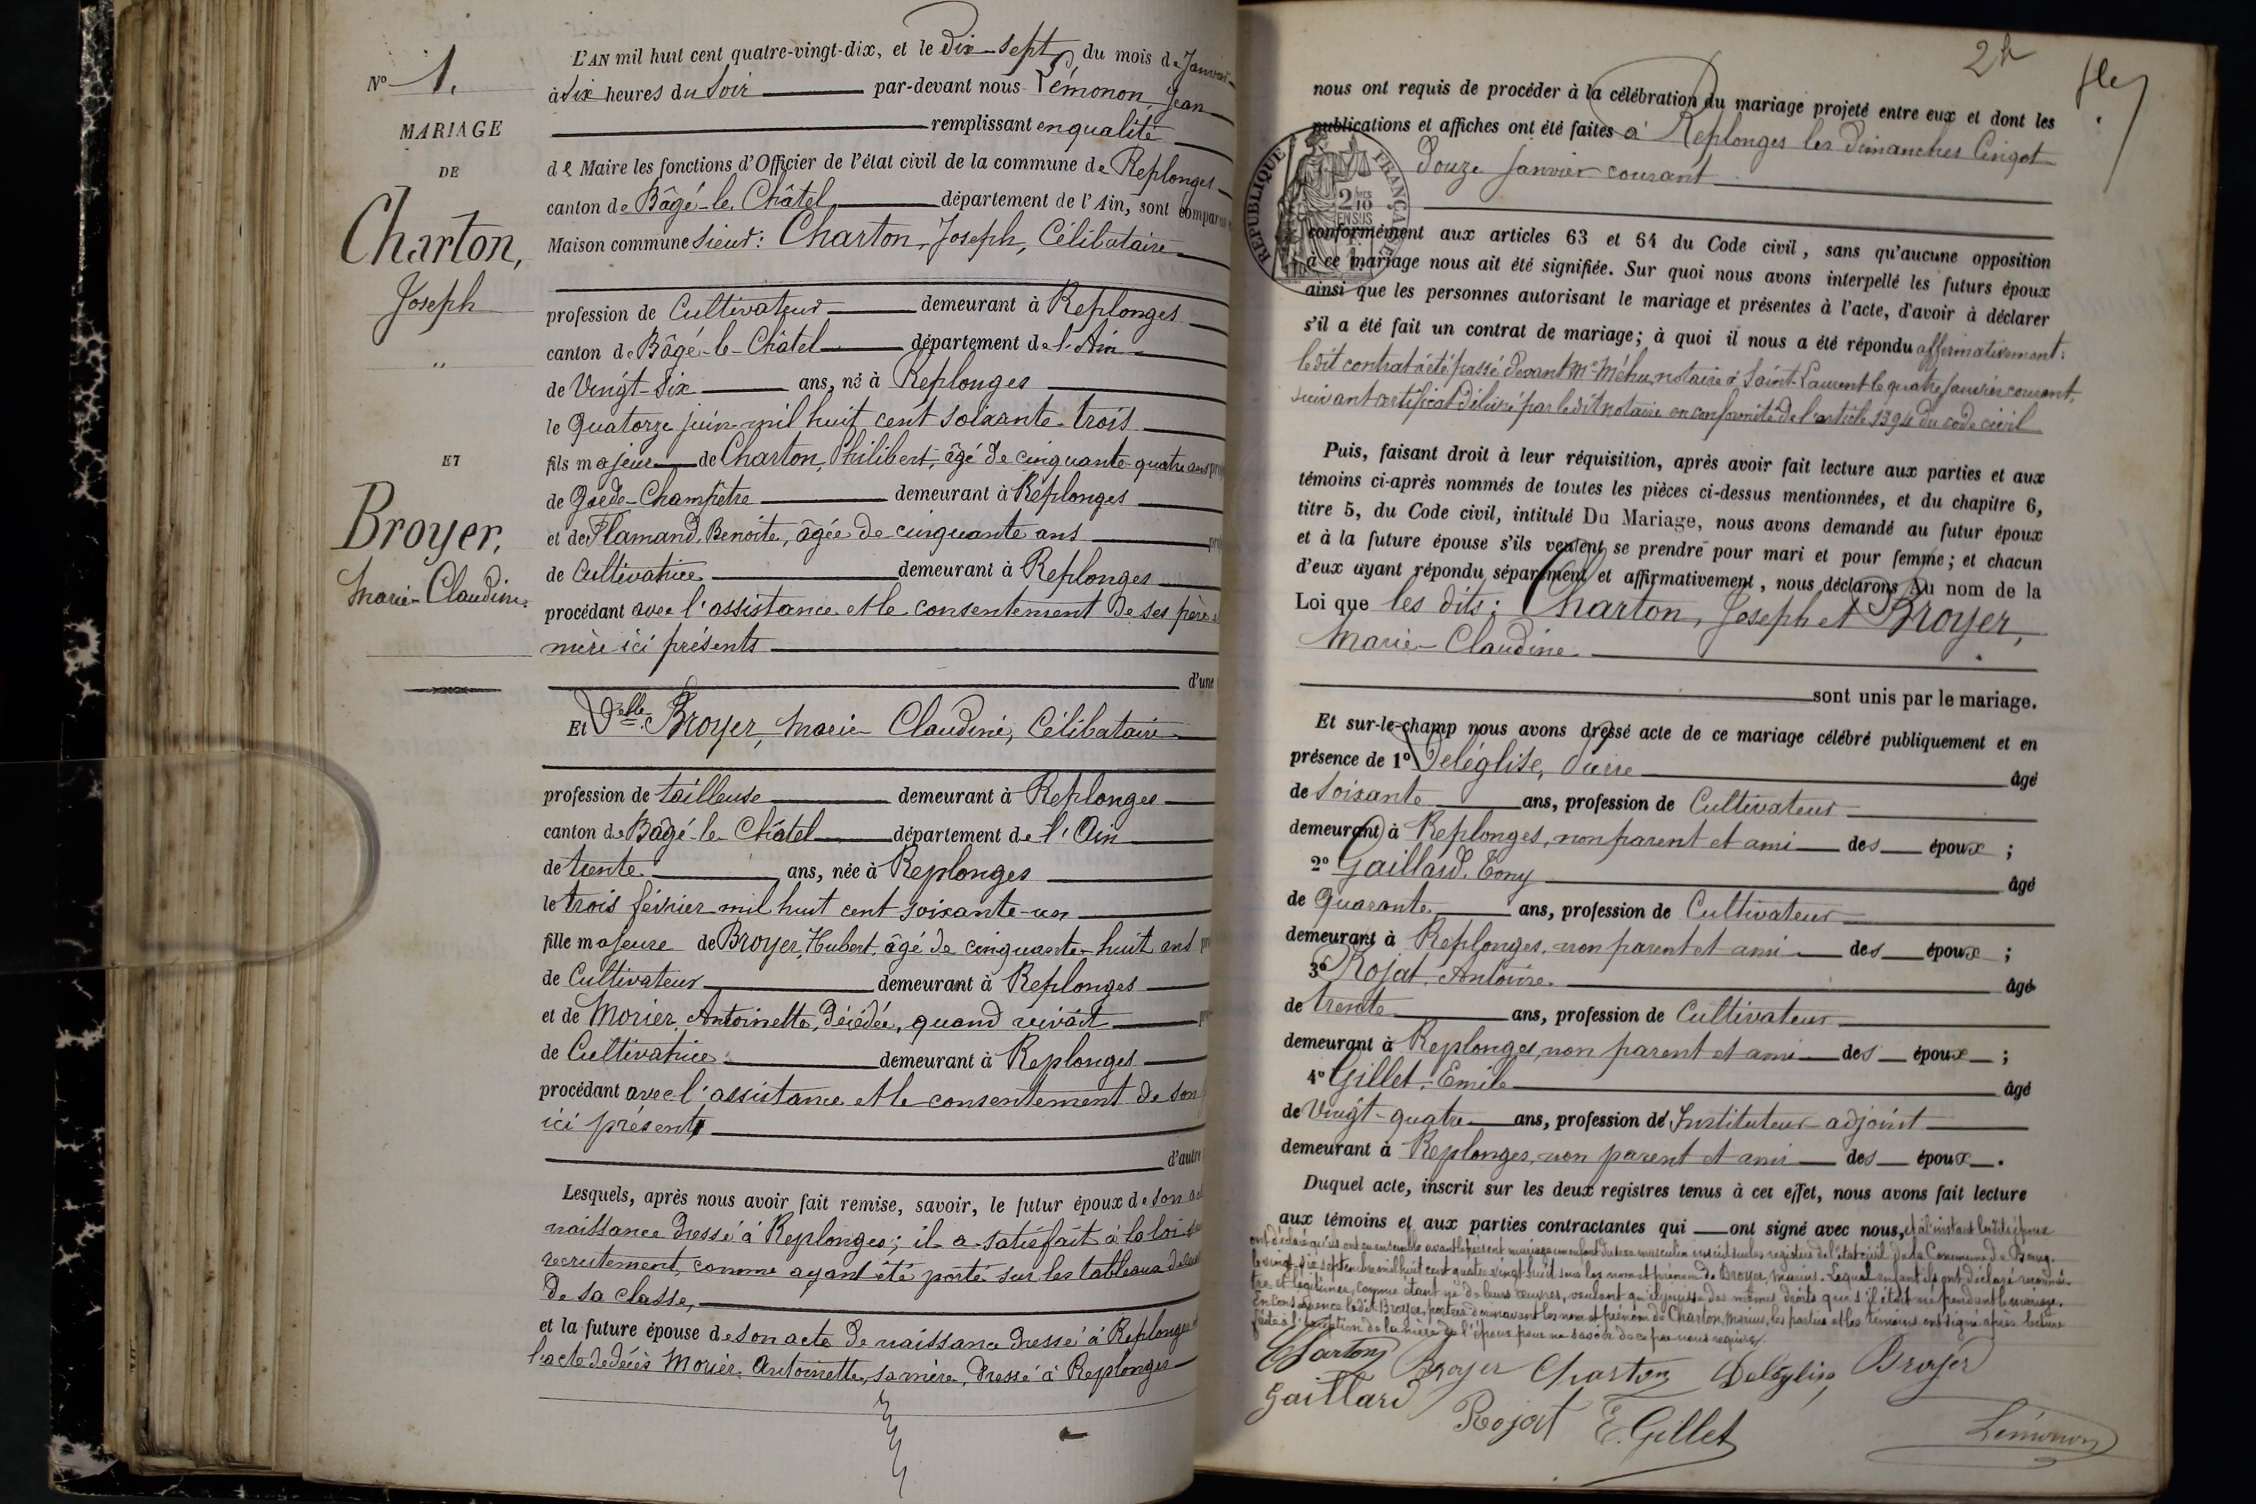 N° 1.
MARIAGE
DE
Charton,
Joseph
"
ET
Broyer,
Marie-Claudine.
L'AN mil huit cent quatre-vingt-dix, et le Dix-sept du mois de Janvier
à six heures du soir par-devant nous Lémonon, Jean
remplissant en qualité
de Maire les fonctions d'Officier de l'état civil de la commune de Replonges
canton de Bâgé-le-Châtel département de l'Ain, sont comparus
Maison commune sieur: Charton, Joseph, Célibataire
profession de Cultivateur demeurant à Replonges
canton de Bâgé-le-Châtel département de l'Ain
de Vingt-six ans, né à Replonges
le Quatorze juin mil huit cent soixante-trois
fils majeur de Charton, Philibert, âgé de cinquante-quatre ans pro
de Garde-Champêtre demeurant à Replonges
et de Flamand, Benoite, âgée de cinquante ans pro
de Cultivatrice demeurant à Replonges
procédant avec l'assistance et le consentement de ses père
mère ici présents
d'une
Et Delle Broyer, Marie Claudine, Célibataire
profession de tailleuse demeurant à Replonges
canton de Bâgé-le-Châtel département de l'Ain
de trente ans, née à Replonges
le trois février mil huit cent soixante-un
fille majeure de Broyer, Hubert, âgé de cinquante-huit ans
de Cultivateur demeurant à Replonges
et de Morier, Antoinette, décédée, quand vivait
de Cultivatrice demeurant à Replonges
procédant avec l'assistance et le consentement de son
ici présent
d'autre
Lesquels, après nous avoir fait remise, savoir, le futur époux de son
naissance dressé à Replonges; il a satisfait à la loi
recrutement, comme ayant été porté sur les tableaux
de sa classe,
et la future épouse de son acte de naissance dressé à Replonges
l'acte de décès Morier, Antoinette, sa mère, dressé à Replonges
2
nous ont requis de procéder à la célébration du mariage projeté entre eux et dont les
publications et affiches ont été faites à Replonges les dimanches Cinq et
Douze Janvier courant
RÉPUBLIQUE FRANÇAISE
conformément aux articles 63 et 64 du Code civil, sans qu'aucune opposition
à ce mariage nous ait été signifiée. Sur quoi nous avons interpellé les futurs époux
ainsi que les personnes autorisant le mariage et présentes à l'acte, d'avoir à déclarer
s'il a été fait un contrat de mariage; à quoi il nous a été répondu affirmativement:
ledit contrat a été passé devant Me Méhu, notaire à Saint-Laurent le quatre janvier courant,
suivant certificat délivré par ledit notaire en conformité de l'article 1394 du code civil
Puis, faisant droit à leur réquisition, après avoir fait lecture aux parties et aux
témoins ci-après nommés de toutes les pièces ci-dessus mentionnées, et du chapitre 6,
titre 5, du Code civil, intitulé Du Mariage, nous avons demandé au futur époux
et à la future épouse s'ils veulent se prendre pour mari et pour femme; et chacun
d'eux ayant répondu séparément et affirmativement, nous déclarons au nom de la
Loi que les dits: Charton, Joseph et Broyer,
Marie-Claudine
sont unis par le mariage.
Et sur-le-champ nous avons dressé acte de ce mariage célébré publiquement et en
présence de 1° Deléglise, Pierre âgé
de soixante ans, profession de Cultivateur
demeurant à Replonges, non parent et ami des époux;
2° Gaillard, Tony âgé
de Quarante ans, profession de Cultivateur
demeurant à Replonges, non parent et ami des époux;
3° Rojat, Antoine âgé
de trente ans, profession de Cultivateur
demeurant à Replonges, non parent et ami des époux;
4° Gillet, Emile âgé
de Vingt-quatre ans, profession de Instituteur adjoint
demeurant à Replonges, non parent et ami des époux.
Duquel acte, inscrit sur les deux registres tenus à cet effet, nous avons fait lecture
aux témoins et aux parties contractantes qui ont signé avec nous, et à l'instant lesdits époux
ont déclaré qu'ils ont eu ensemble avant le présent mariage un enfant du sexe masculin inscrit sur les registres de l'état civil de la Commune de Bourg,
le vingt-six septembre mil huit cent quatre vingt huit sous les nom et prénom de Broyer, Marius. Lequel enfant ils ont déclaré reconnaî-
tre et légitimer, comme étant né de leurs œuvres, voulant qu'il jouisse des mêmes droits que s'il était né pendant le mariage.
En conséquence ledit Broyer, portera dorénavant les nom et prénom de Charton, Marius, les parties et les témoins ont signé après lecture
faite à l'exception de la mère de l'époux pour ne savoir de ce par nous requise.
Charton Broyer Charton Deléglise Broyer
Gaillard Rojat E. Gillet Lémonon